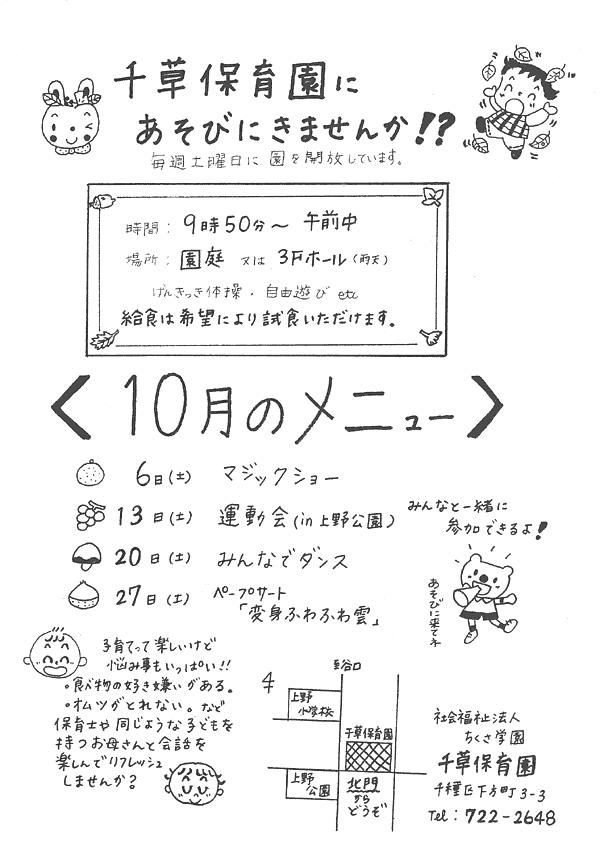 千草保育園に
あそびにきませんか!?
毎週土曜日に 園を開放しています。
時間: 9時50分～ 午前中
場所: 園庭 又は 3Fホール(雨天)
げんきっき体操・自由遊び etc
給食は希望により試食いただけます。
〈10月のメニュー〉
6日(土) マジックショー
13日(土) 運動会(in 上野公園)
20日(土) みんなでダンス
27日(土) ペープサート
「変身ふわふわ雲」
みんなと一緒に
参加できるよ!
あそびに来てネ
子育てって楽しいけど
悩み事もいっぱい!!
・食べ物の好き嫌いがある。
・オムツがとれない。など
保育士や同じような子どもを
持つお母さんと会話を
楽しんでリフレッシュ
しませんか?
至谷口
上野
小学校
千草保育園
上野
公園
北門
から
どうぞ
社会福祉法人
ちくさ学園
千草保育園
千種区下方町3-3
Tel: 722-2648